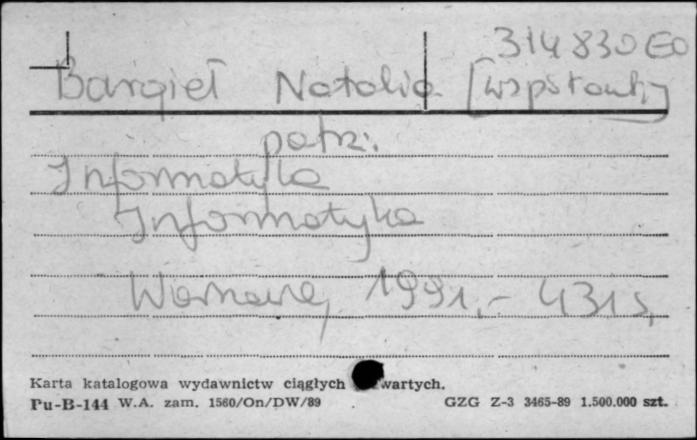 314830 EO
Bargieł Natalia [współaut.]
patrz:
Informatyka
Informatyka
Warszawa, 1991.- 431 s.
Karta katalogowa wydawnictw ciągłych wartych.
Pu-B-144 W.A. zam. 1560/On/DW/89 GZG Z-3 3465-89 1.500.000 szt.